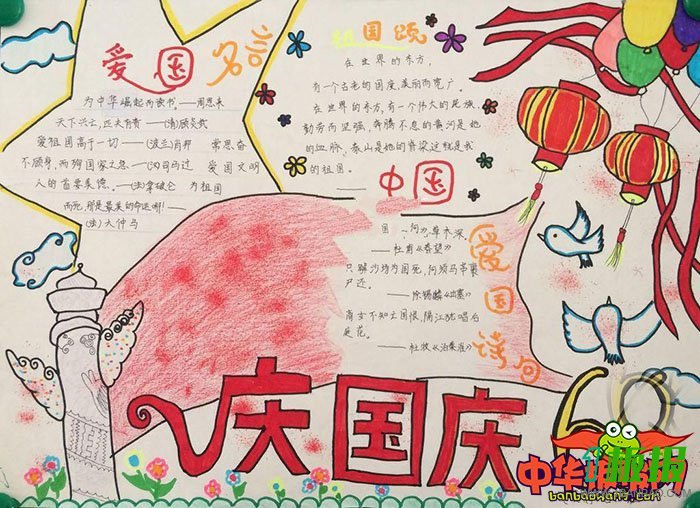 爱国名言
为中华崛起而读书。——周恩来
天下兴亡，匹夫有责——(清)顾炎武
爱祖国高于一切——(波兰)肖邦 常思奋
不顾身，而殉国家之急——(汉)司马迁 爱国文明
人的首要美德。——(法)拿破仑 为祖国
而死，那是最美的命运啊!——
(法)大仲马
祖国颂
在世界的东方，
有一个古老的国度美丽而宽广。
在世界的东方，有一个伟大的民族
勤劳而坚强。奔腾不息的黄河是她
的血脉，泰山是她的脊梁这就是我
的祖国。
——中国
爱国诗句
草木深。
——杜甫《春望》
只解沙场为国死，何须马革裹
尸还。
——徐锡麟《出塞》
商女不知亡国恨，隔江犹唱后
庭花。
——杜牧《泊秦淮》
庆国庆
中华
板报
banbaowang.com